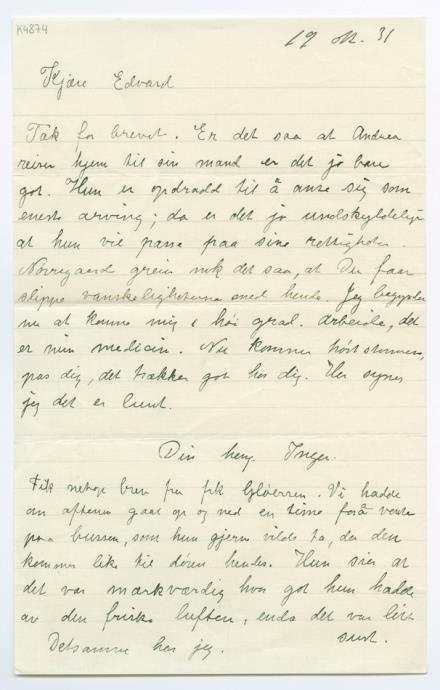 K4874
19 ok. 31
Kjære Edvard
Tak for brevet. Er det saa at Andrea
reiser hjem til sin mand er det jo bare
got. Hun er opdradd til å anse sig som
eneste arving; da er det jo undskyldelig
at hun vil passe paa sine rettigheder.
Nørregaard greier nok det saa, at Du faar
slippe vanskelighetene med hende. Jeg begynder
nu at kjenne mig i høi grad. arbeide, det
er min medicin. Nu kommer høststormene,
pas dig, det trækker got hos dig. Her synes
jeg det er lunt.
Din heng. Inger.
Fik netop brev fra frk . Vi hadde
om aftenen gaat op og ned en time forå vente
paa bussen, som hun gjerne vilde ta, da den
kommer like til døren hendes. Hun sier at
det var mærkværdig hvor got hun hadde
av den friske luften, enda det var litt
surt.
Detsamme har jeg.